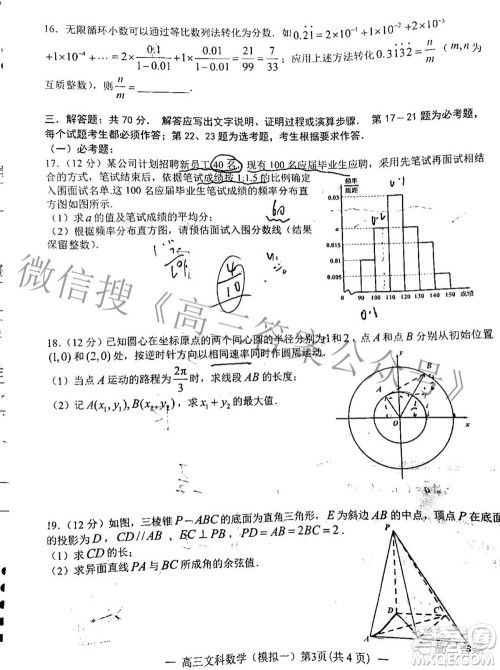 16．无限循环小数可以通过等比数列法转化为分数．如0.2̇1̇=2×10⁻¹+1×10⁻²+2×10⁻³
+1×10⁻⁴+⋯=2×0.1/(1-0.01)+1×0.01/(1-0.01)=21/99=7/33；应用上述方法转化0.31̇32̇=n/m（m,n为
互质整数），则n/m=
三、解答题：共 70 分． 解答应写出文字说明、证明过程或演算步骤．第 17～21 题为必考题，
每个试题考生都必须作答；第 22、23 题为选考题，考生根据要求作答．
（一）必考题：
17.（12 分）某公司计划招聘新员工 40 名，现有 100 名应届毕业生应聘，采用先笔试再面试相
结合的方式，笔试结束后，依据笔试成绩按 1:1.5 的比例确定
入围面试名单．这 100 名应届毕业生笔试成绩的频率分布直
方图如图所示．
（1）求 a 的值及笔试成绩的平均分；
（2）根据频率分布直方图，请预估面试入围分数线（结果
保留整数）．
频率
组距
0.03
0.015
0.01
0.005
0 90 100 110 120 130 140 150 成绩
60
4
10
0.1
0.1
18.（12 分）已知圆心在坐标原点的两个同心圆的半径分别为1和2，点 A 和点 B 分别从初始位置
(1,0)和(2,0)处，按逆时针方向以相同速率同时作圆周运动．
（1）当点 A 运动的路程为2π/3时，求线段 AB 的长度；
（2）记 A(x₁,y₁),B(x₂,y₂)，求x₁+y₂的最大值．
y
B
A
O
x
19.（12 分）如图，三棱锥 P-ABC 的底面为直角三角形，E 为斜边 AB 的中点，顶点 P 在底面
的投影为 D，CD//AB，
（1）求 CD 的长；
（2）求异面直线PA 与 BC 所成角的余弦值．
P
D
C
A
微信搜《高三答案公众号》
高三文科数学（模拟一）第3页(共 4 页)